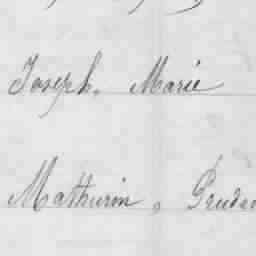 Joseph. Marie
Mathurin, Pruden